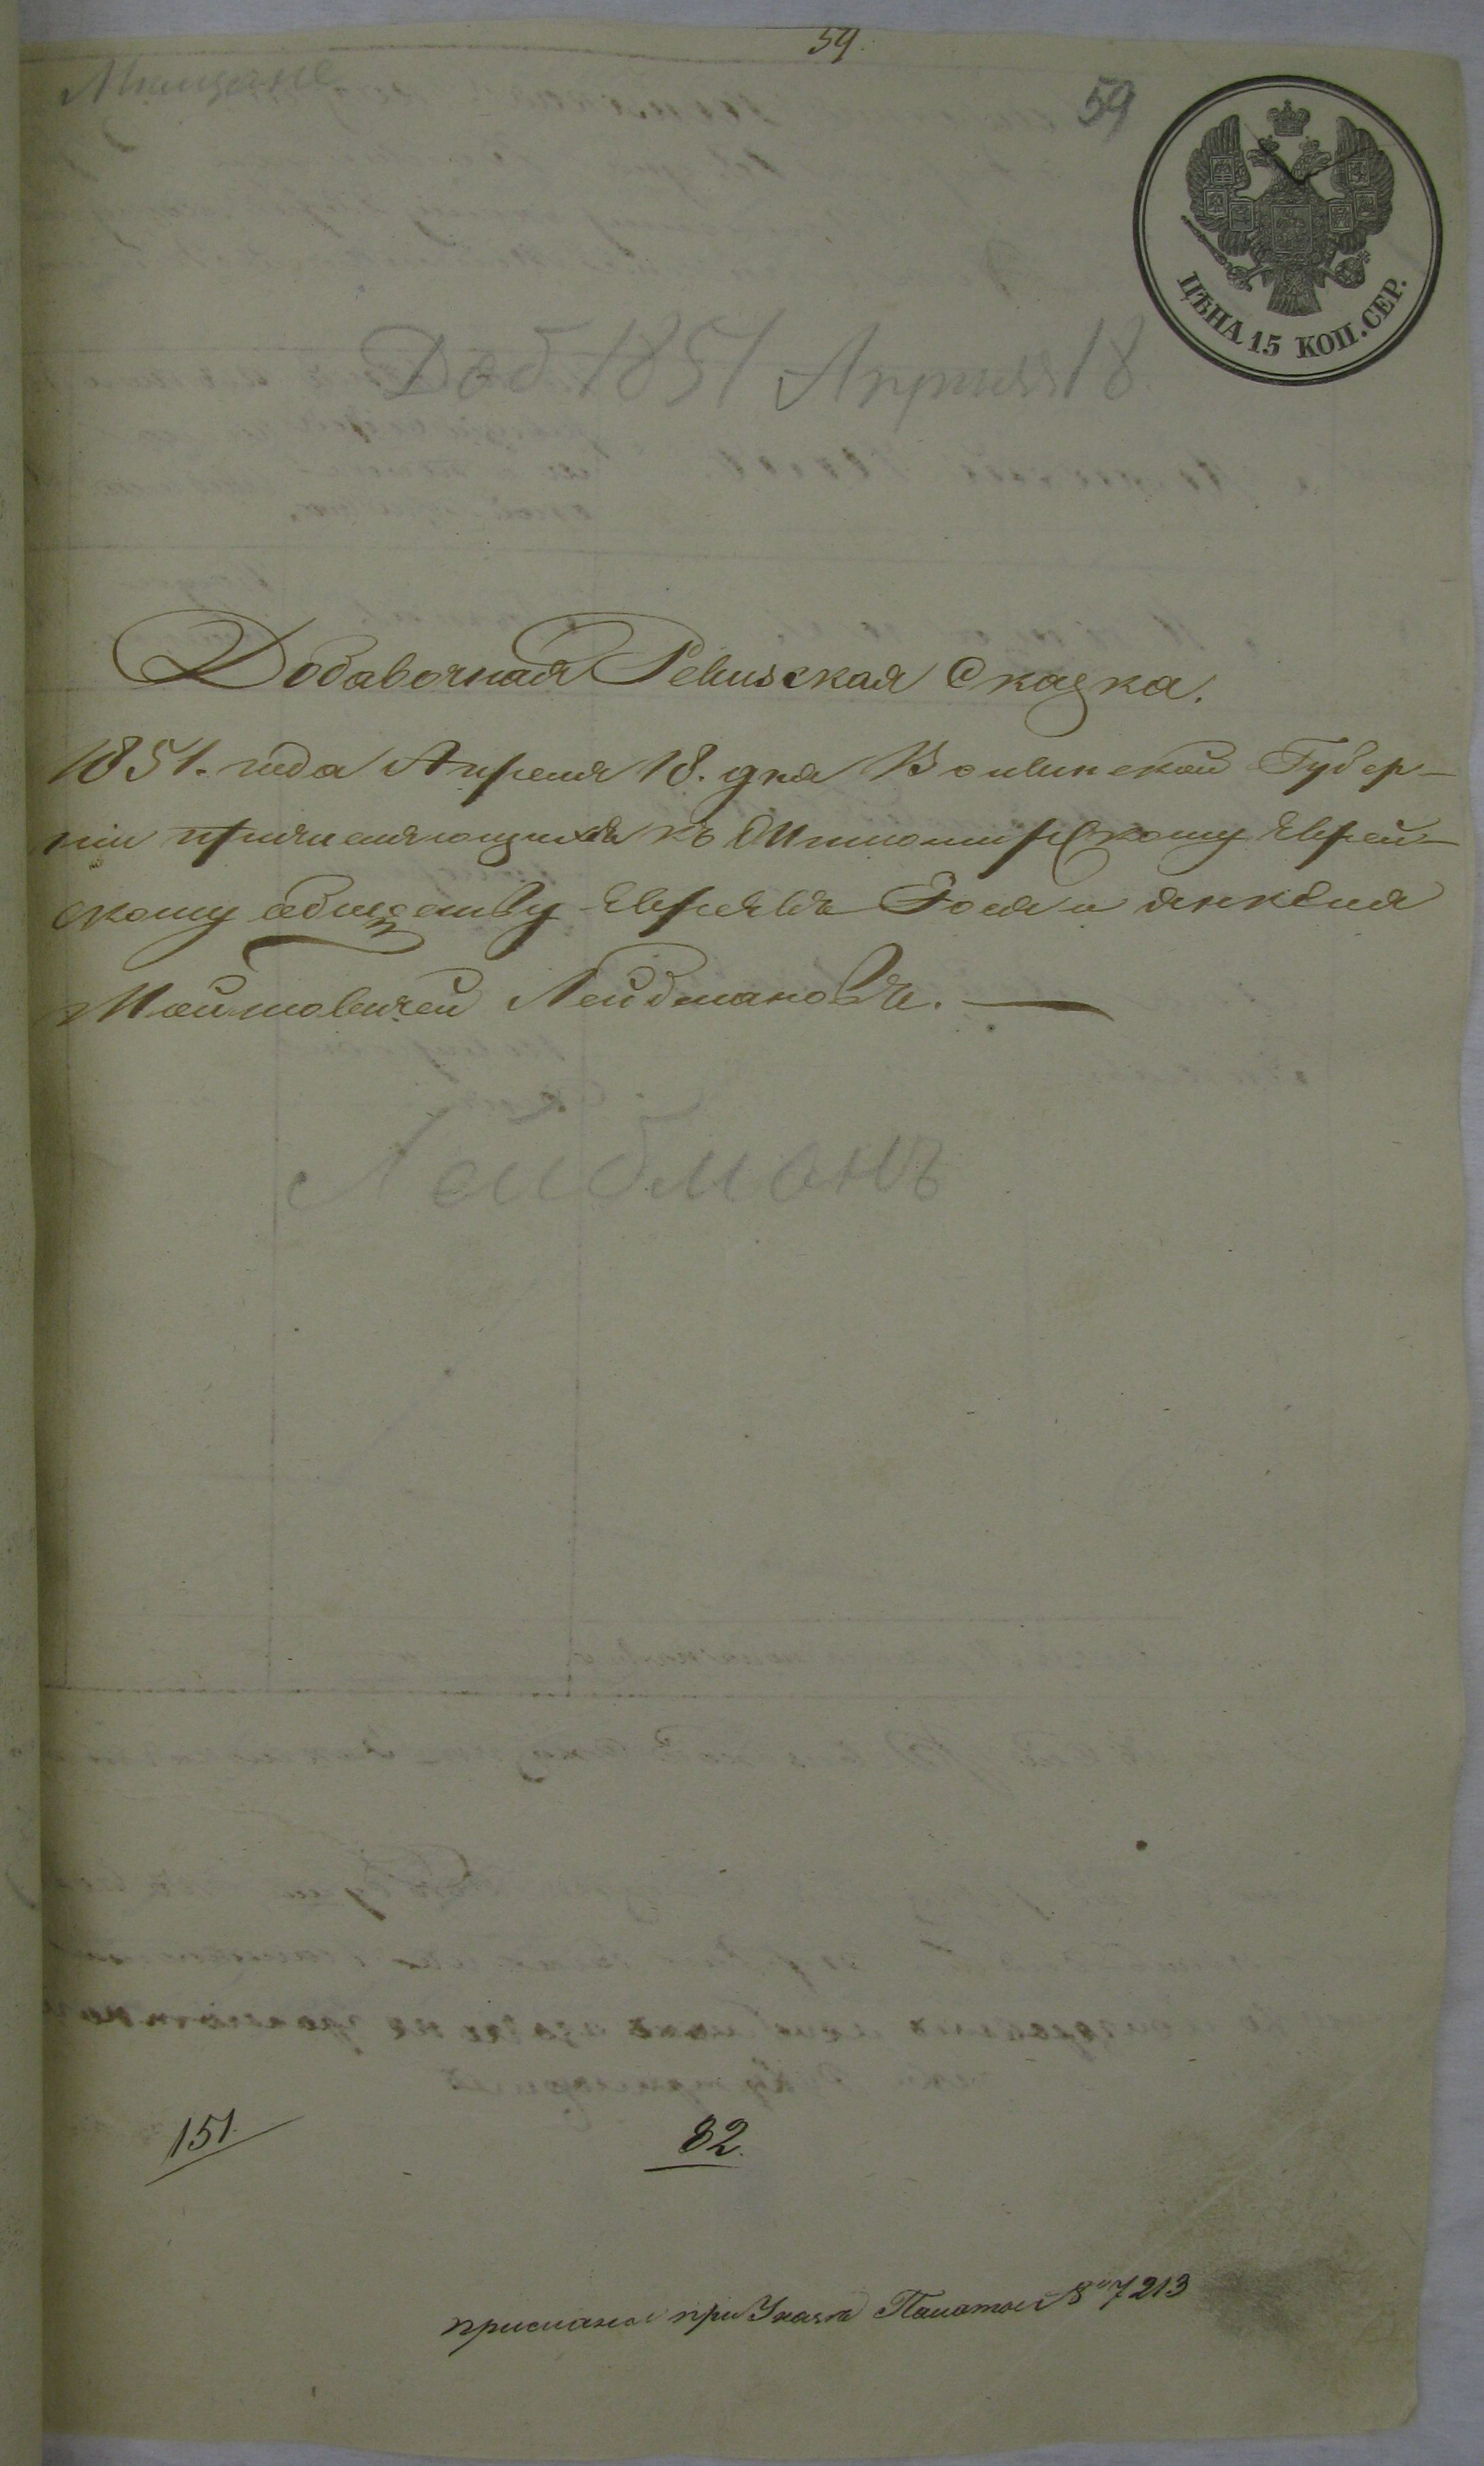 59.
Мещане
59
ЦѢНА 15 КОП. СЕР.
Доб. 1851 Апреля 18.
Добавочная Ревизская Сказка.
1851. года Апреля 18. дня Волынской Губер-
нии причисляющихся къ Житомирскому Еврей-
скому обществу Евреевъ и Янкеля
Лейбмановъ.
Лейбманъ
151.
82.
прислана при Указе Палаты 7213